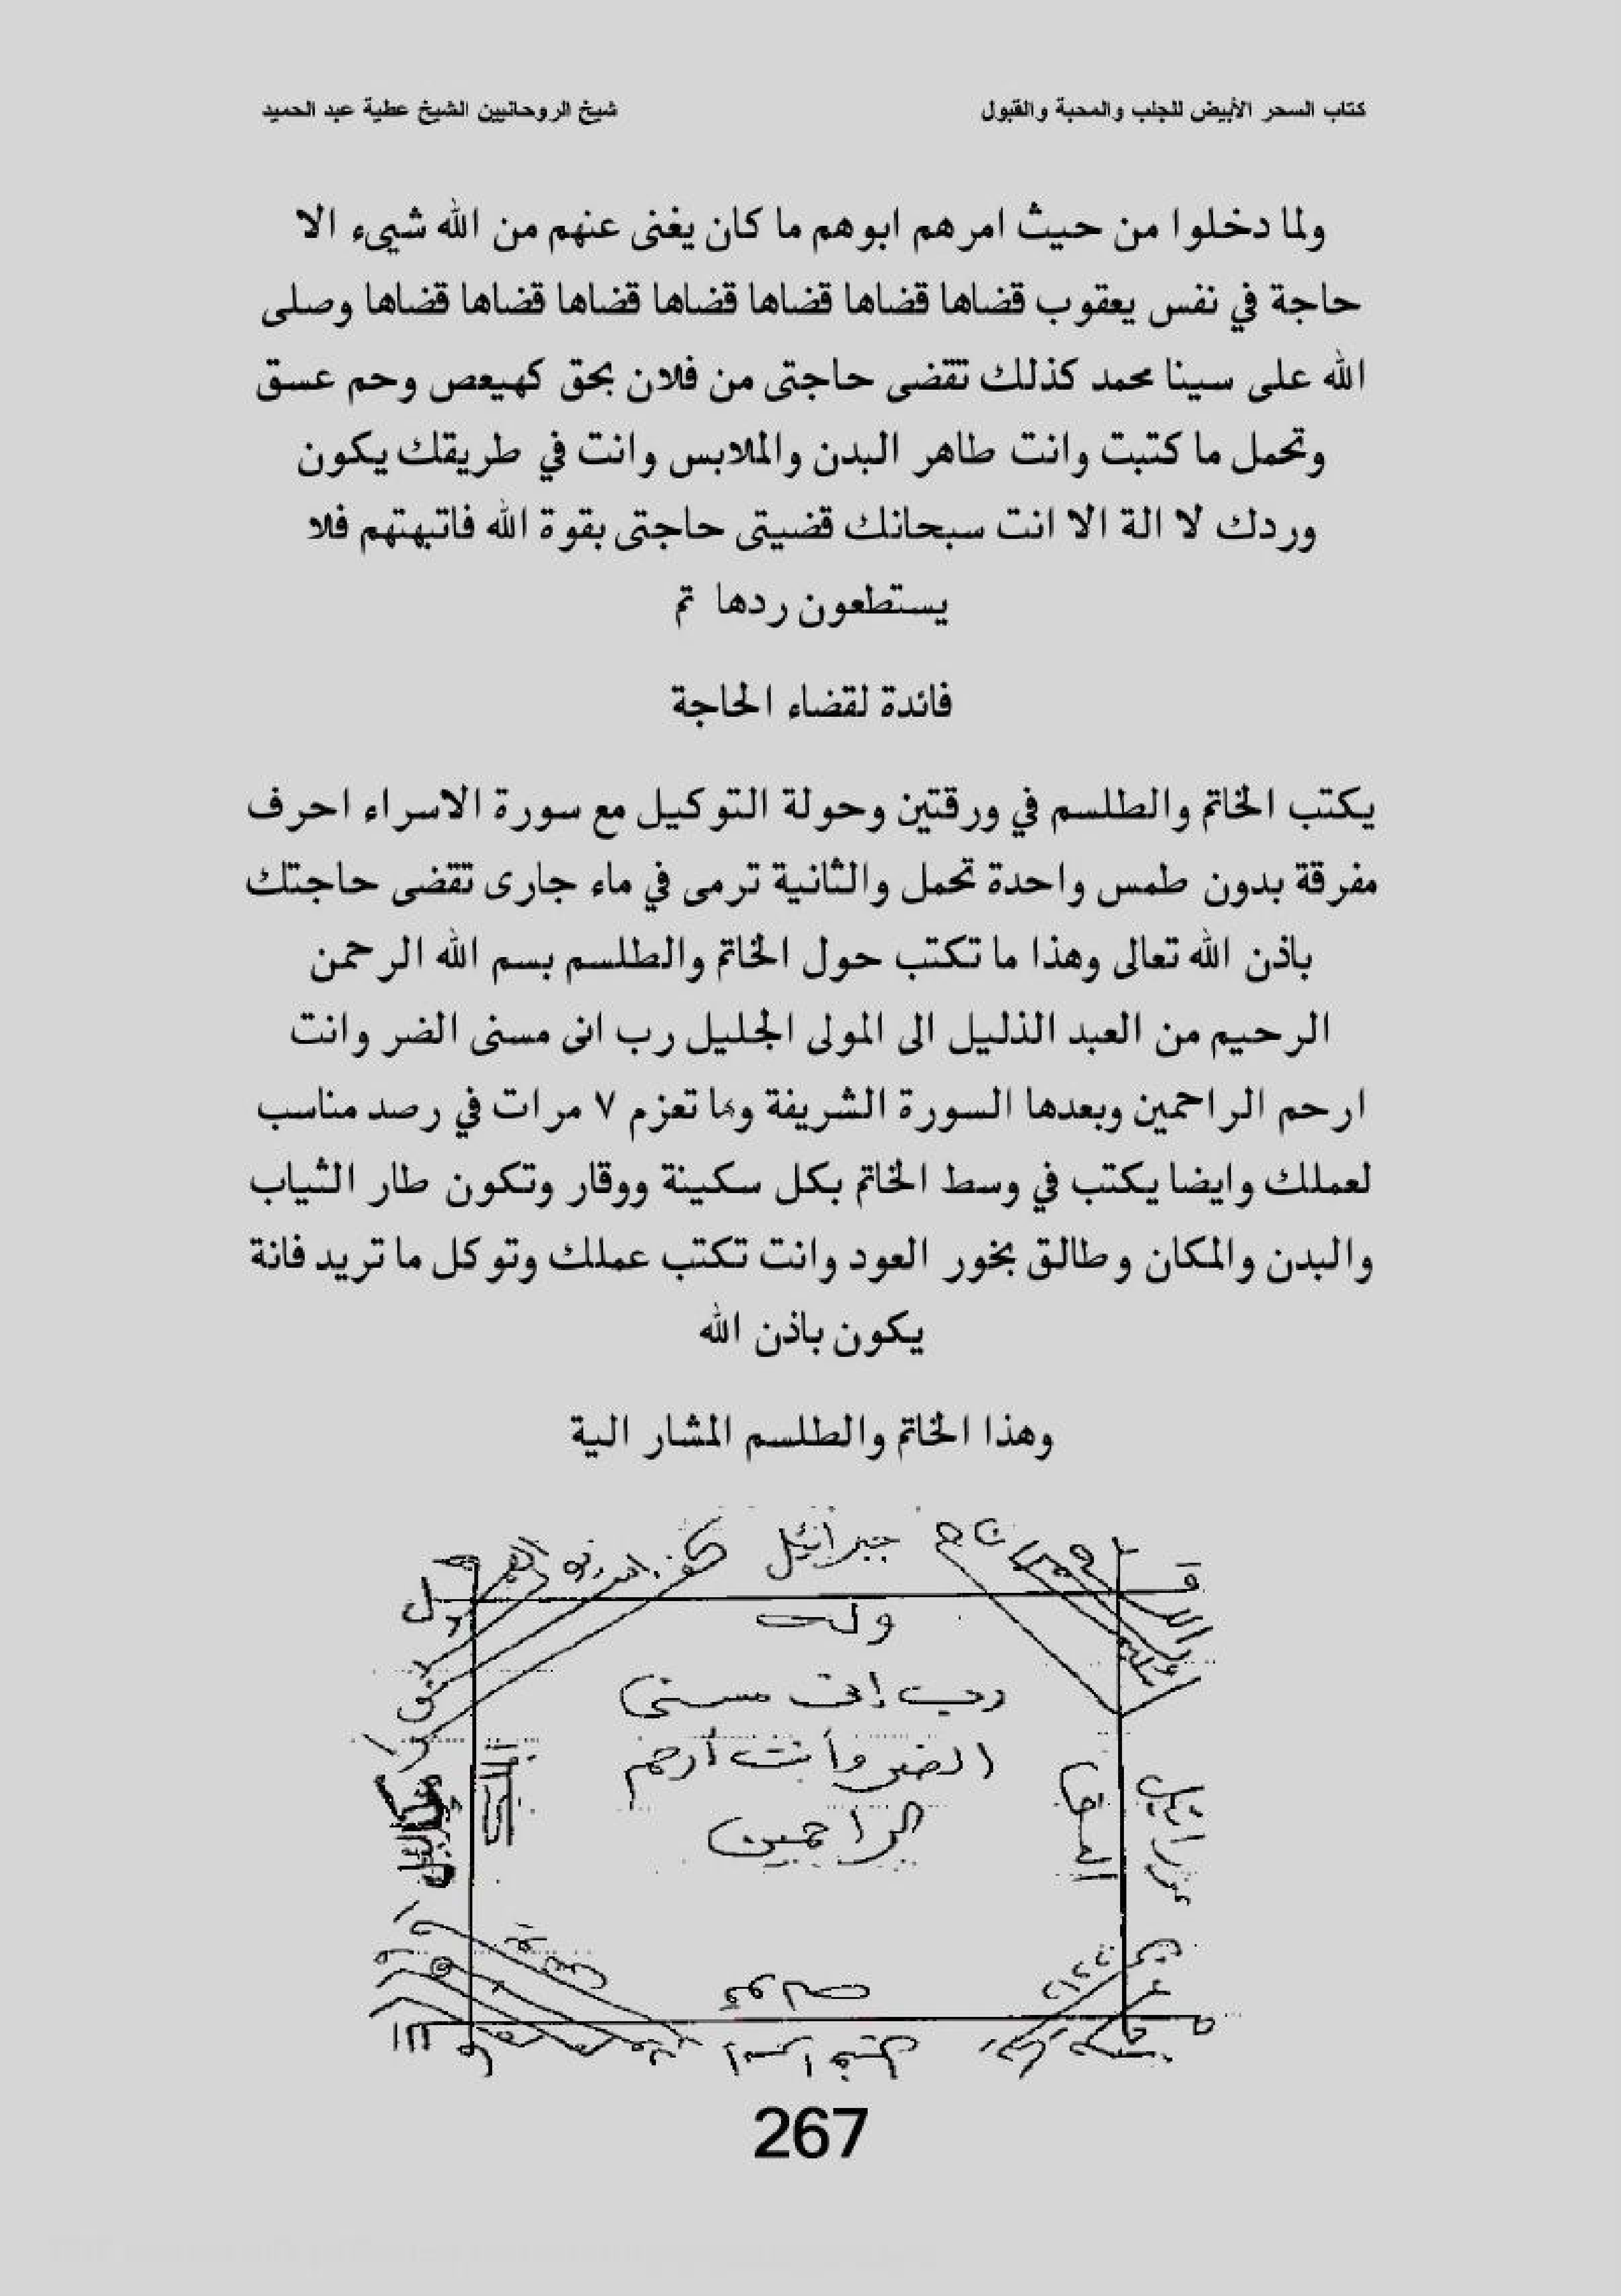 كتاب السحر الأبيض للجلب والمحبة والقبول
شيخ الروحانيين الشيخ عطية عبد الحميد
ولما دخلوا من حيث امرهم ابوهم ما كان يغنى عنهم من الله شيىء الا
حاجة في نفس يعقوب قضاها قضاها قضاها قضاها قضاها قضاها قضاها وصلى
الله على سينا محمد كذلك تقضى حاجتى من فلان بحق كهيعص وحم عسق
وتحمل ما كتبت وانت طاهر البدن والملابس وانت في طريقك يكون
وردك لا الة الا انت سبحانك قضيتى حاجتى بقوة الله فاتبهتهم فلا
يستطعون ردها تم
فائدة لقضاء الحاجة
يكتب الخاتم والطلسم في ورقتين وحولة التوكيل مع سورة الاسراء احرف
مفرقة بدون طمس واحدة تحمل والثانية ترمى في ماء جارى تقضى حاجتك
باذن الله تعالى وهذا ما تكتب حول الخاتم والطلسم بسم الله الرحمن
الرحيم من العبد الذليل الى المولى الجليل رب انى مسنى الضر وانت
ارحم الراحمين وبعدها السورة الشريفة وبما تعزم ٧ مرات في رصد مناسب
لعملك وايضا يكتب في وسط الخاتم بكل سكينة ووقار وتكون طار الثياب
والبدن والمكان وطالق بخور العود وانت تكتب عملك وتوكل ما تريد فانة
يكون باذن الله
وهذا الخاتم والطلسم المشار الية
جبرائيل
رب إنى مسنى
الضر وأنت أرحم
الراحمين
عزرائيل
267